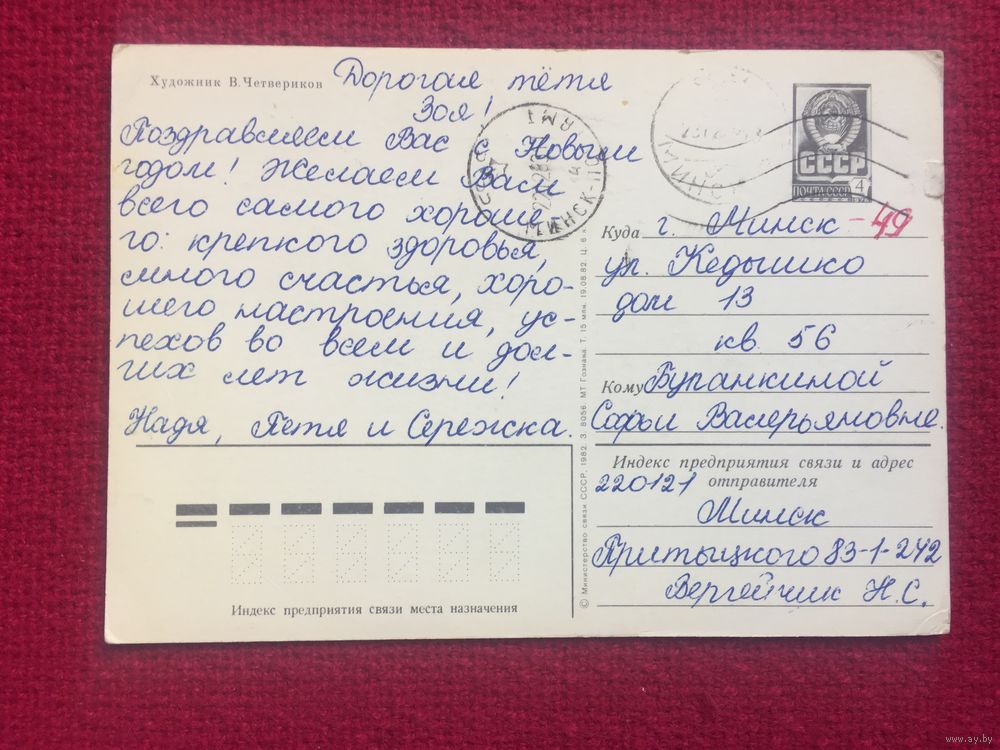 Художник В. Четвериков
Дорогая тётя
Зоя!
Поздравляем Вас с Новым
годом! Желаем Вам
всего самого хороше-
го: крепкого здоровья,
много счастья, хоро-
шего настроения, ус-
пехов во всем и дол-
гих лет жизни!
Надя, Петя и Сережка.
Индекс предприятия связи места назначения
© Министерство связи СССР. 1982. З. 8056. МТ Гознака. Т. 15 млн. 19.08.82. Ц. 6 к.
СССР
ПОЧТА СССР 4
1976
Куда г. Минск - 49
ул. Кедышко
дом 13
кв. 56
Кому Бупанкиной
Софьи Валерьяновне.
Индекс предприятия связи и адрес
отправителя
220121
Минск
Притыцкого 83-1-242
Вергейчик Н.С.
www.ay.by